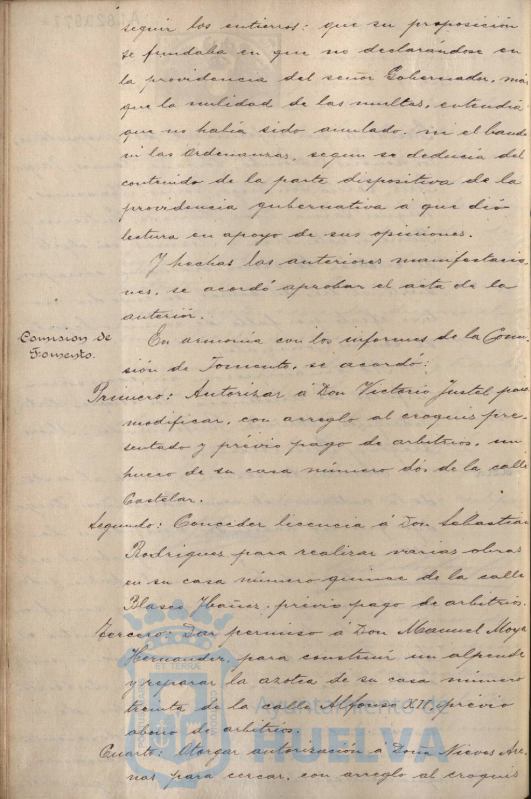 seguir los entierros: que su proposición
se fundaba en que no declarándose en
la providencia del señor Gobernador, más
que la nulidad de las multas, entendía
que no había sido anulado, ni el bando
ni las Ordenanzas, segun se deducía del
contenido de la parte dispositiva de la
providencia gubernativa á que dió
lectura en apoyo de sus opiniones.
Y hechas las anteriores manifestacio
nes, se acordó aprobar el acta de la
anterior.
Comision de
Fomento.
En armonía con los informes de la Comi
sión de Fomento, se acordó:
Primero: Autorizar á Don Victorio Justel para
modificar, con arreglo al croquis pre
sentado y prévio pago de arbitrios, un
hueco de su casa número dós de la calle
Castelar.
Segundo: Conceder licencia á Don Sebastian
Rodrigues para realizar varias obras
en su casa número quince de la calle
Blasco Ibañez, prévio pago de arbitrios.
Tercero: Dar permiso á Don Manuel Moya
Hernander, para construir un alpende
y reparar la azotea de su casa número
treinta de la calle Alfonso XII, prévio
abono de arbitrios.
Cuarto: Otorgar autorización á Doña Nieves Are
nas para cercar, con arreglo al croquis
Ayuntamiento de
HUELVA